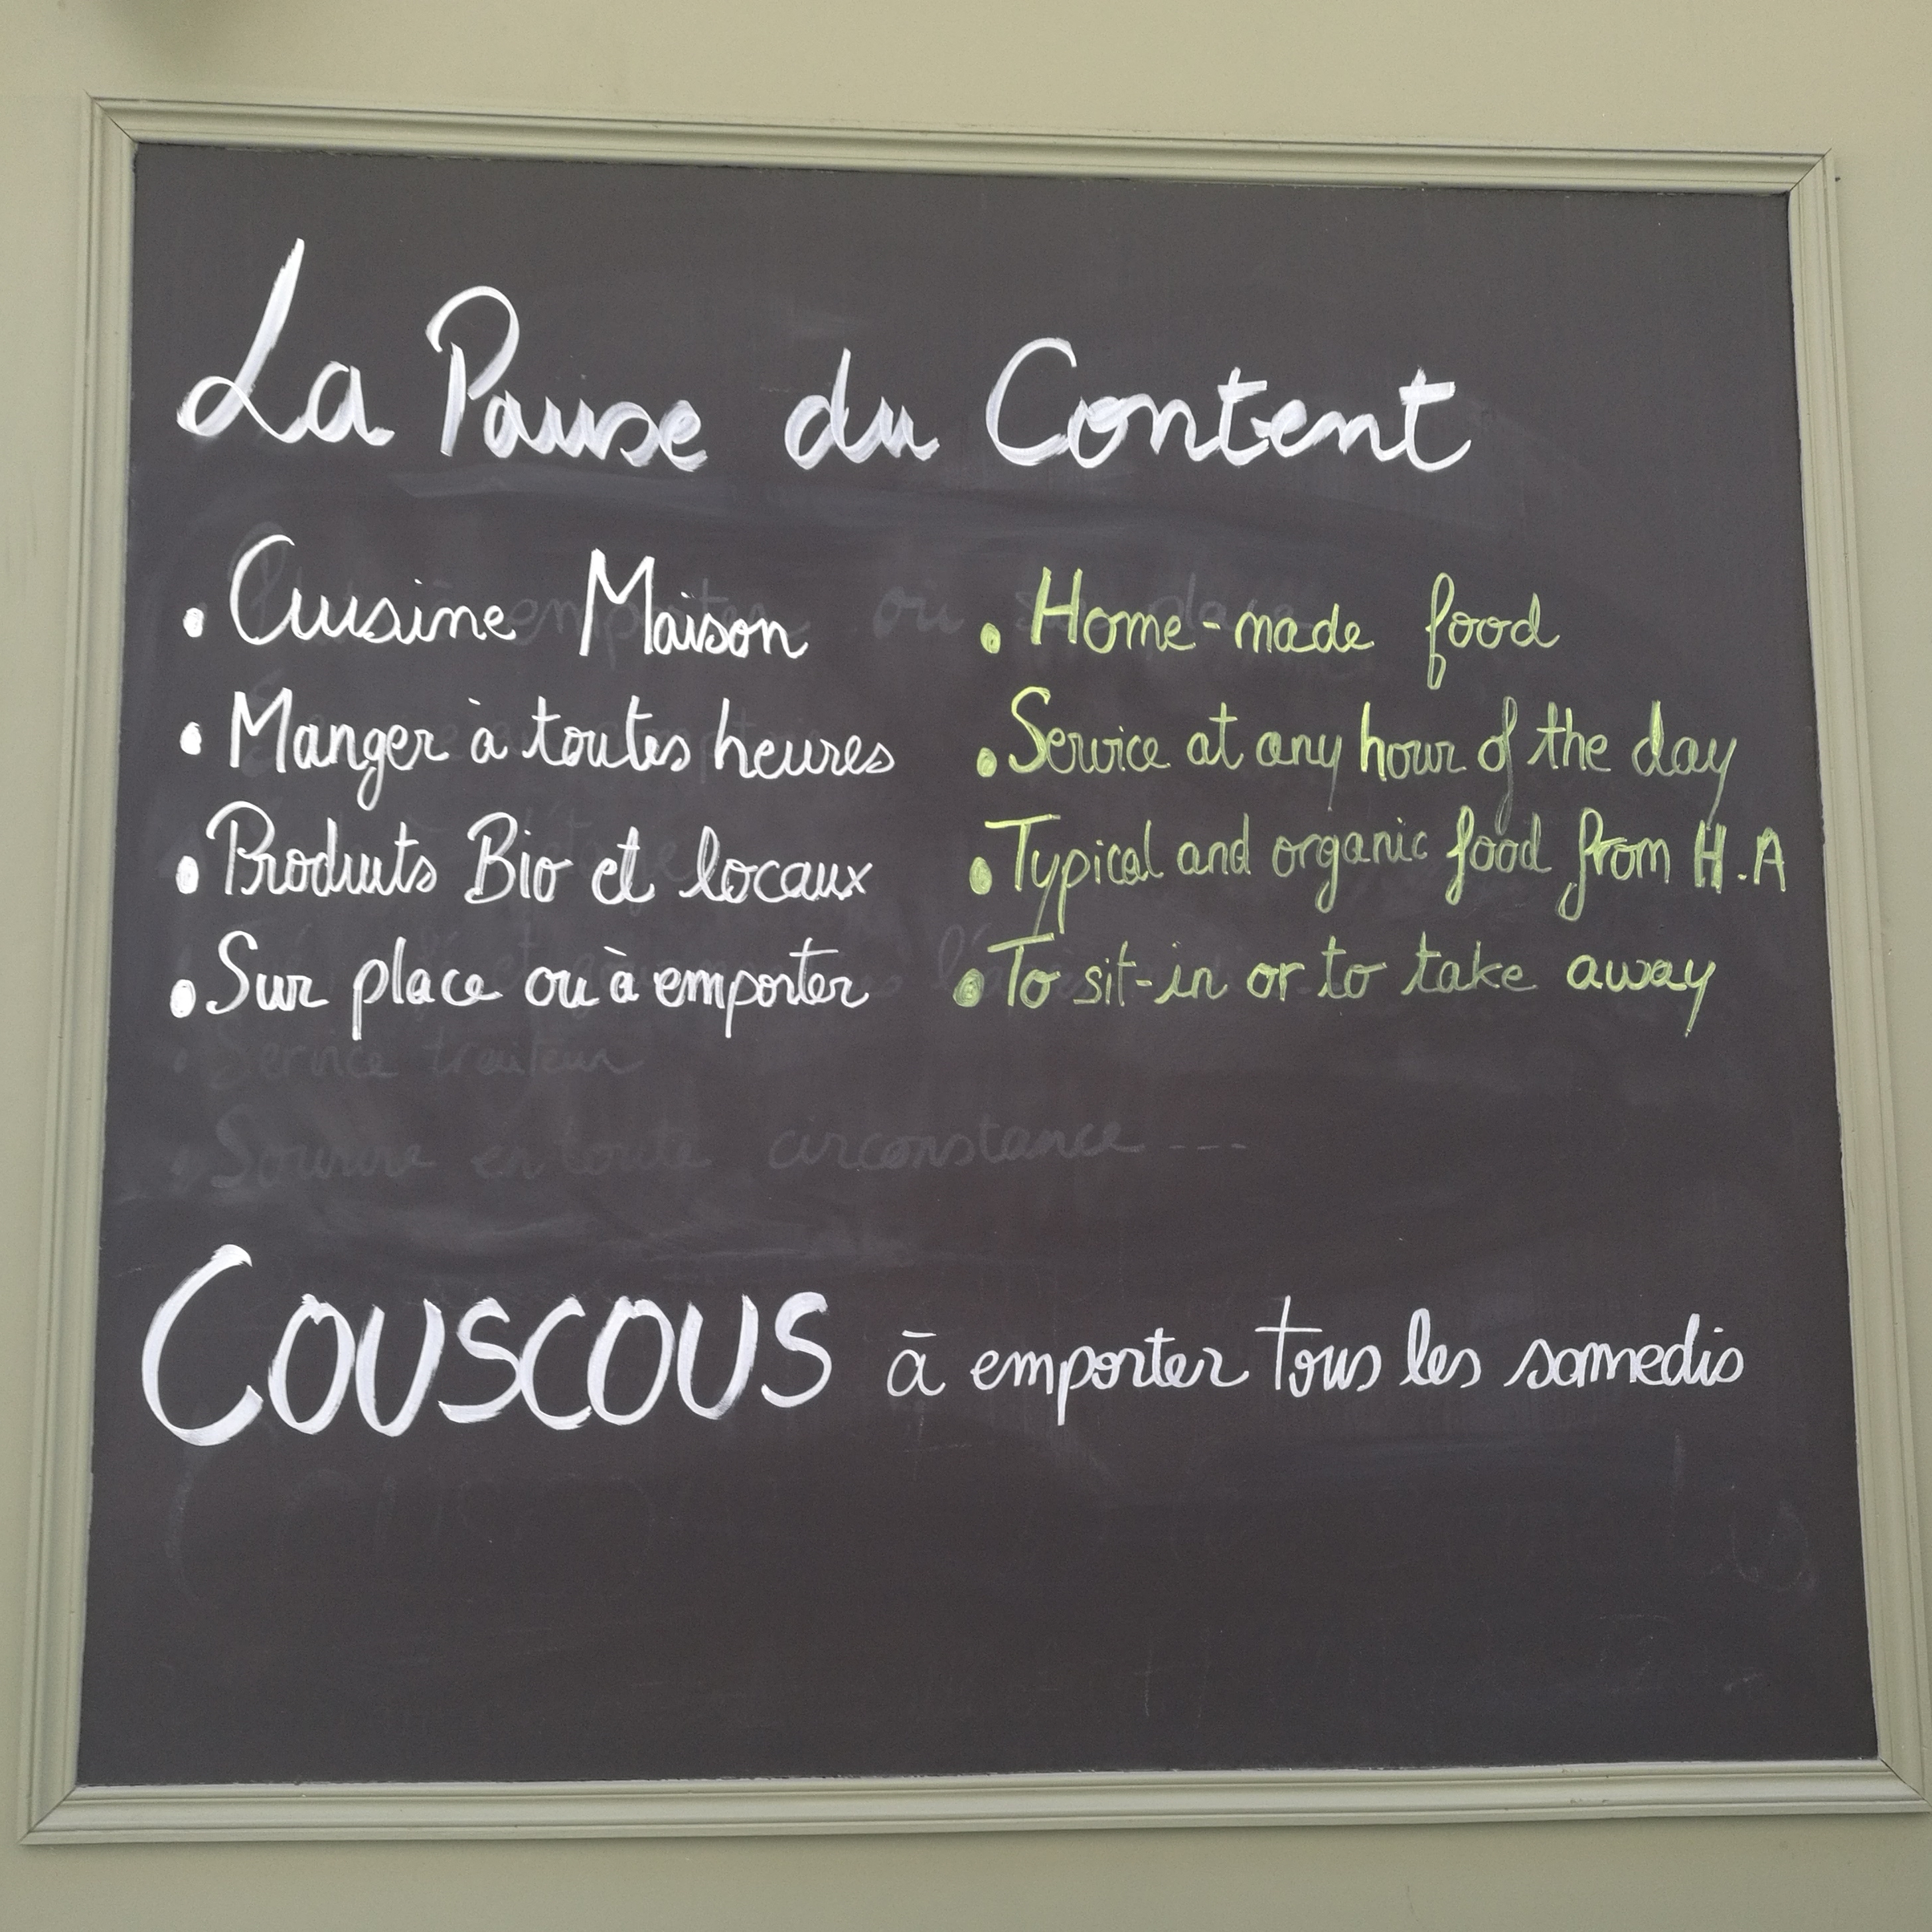 La Pause du Content
• Cuisine Maison
• Manger à toutes heures
• Produits Bio et locaux
• Sur place ou à emporter
• Home-made food
• Service at any hour of the day
• Typical and organic food from H.A
• To sit-in or to take away
• Service traiteur
• Sourire en toute circonstance ---
COUSCOUS à emporter tous les samedis